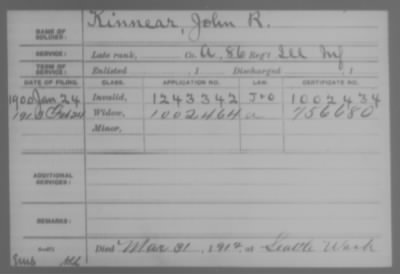 NAME OF SOLDIER: Kinnear, John R.
SERVICE: Late rank, Co. A, 86 Reg't Ill Inf
TERM OF SERVICE: Enlisted , 1 Discharged , 1
DATE OF FILING. CLASS. APPLICATION NO. LAW. CERTIFICATE NO.
1900 Jan 24 Invalid, 1243342 1002434
Widow, 1002464 756680
Minor,
ADDITIONAL SERVICES:
REMARKS:
Died Mar 31, 1912, at Seattle Wash